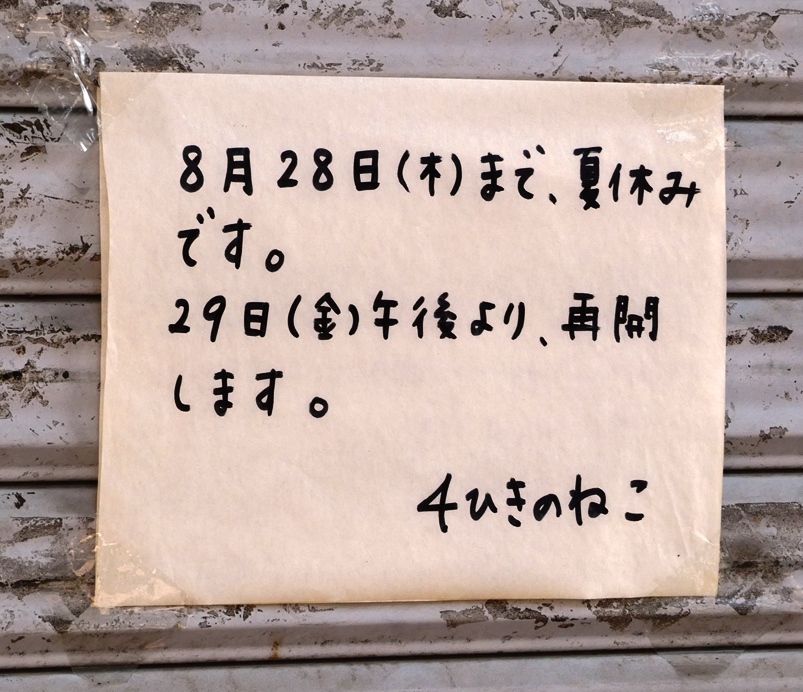 8月28日(木)まで、夏休み
です。
29日(金)午後より、再開
します。
4ひきのねこ